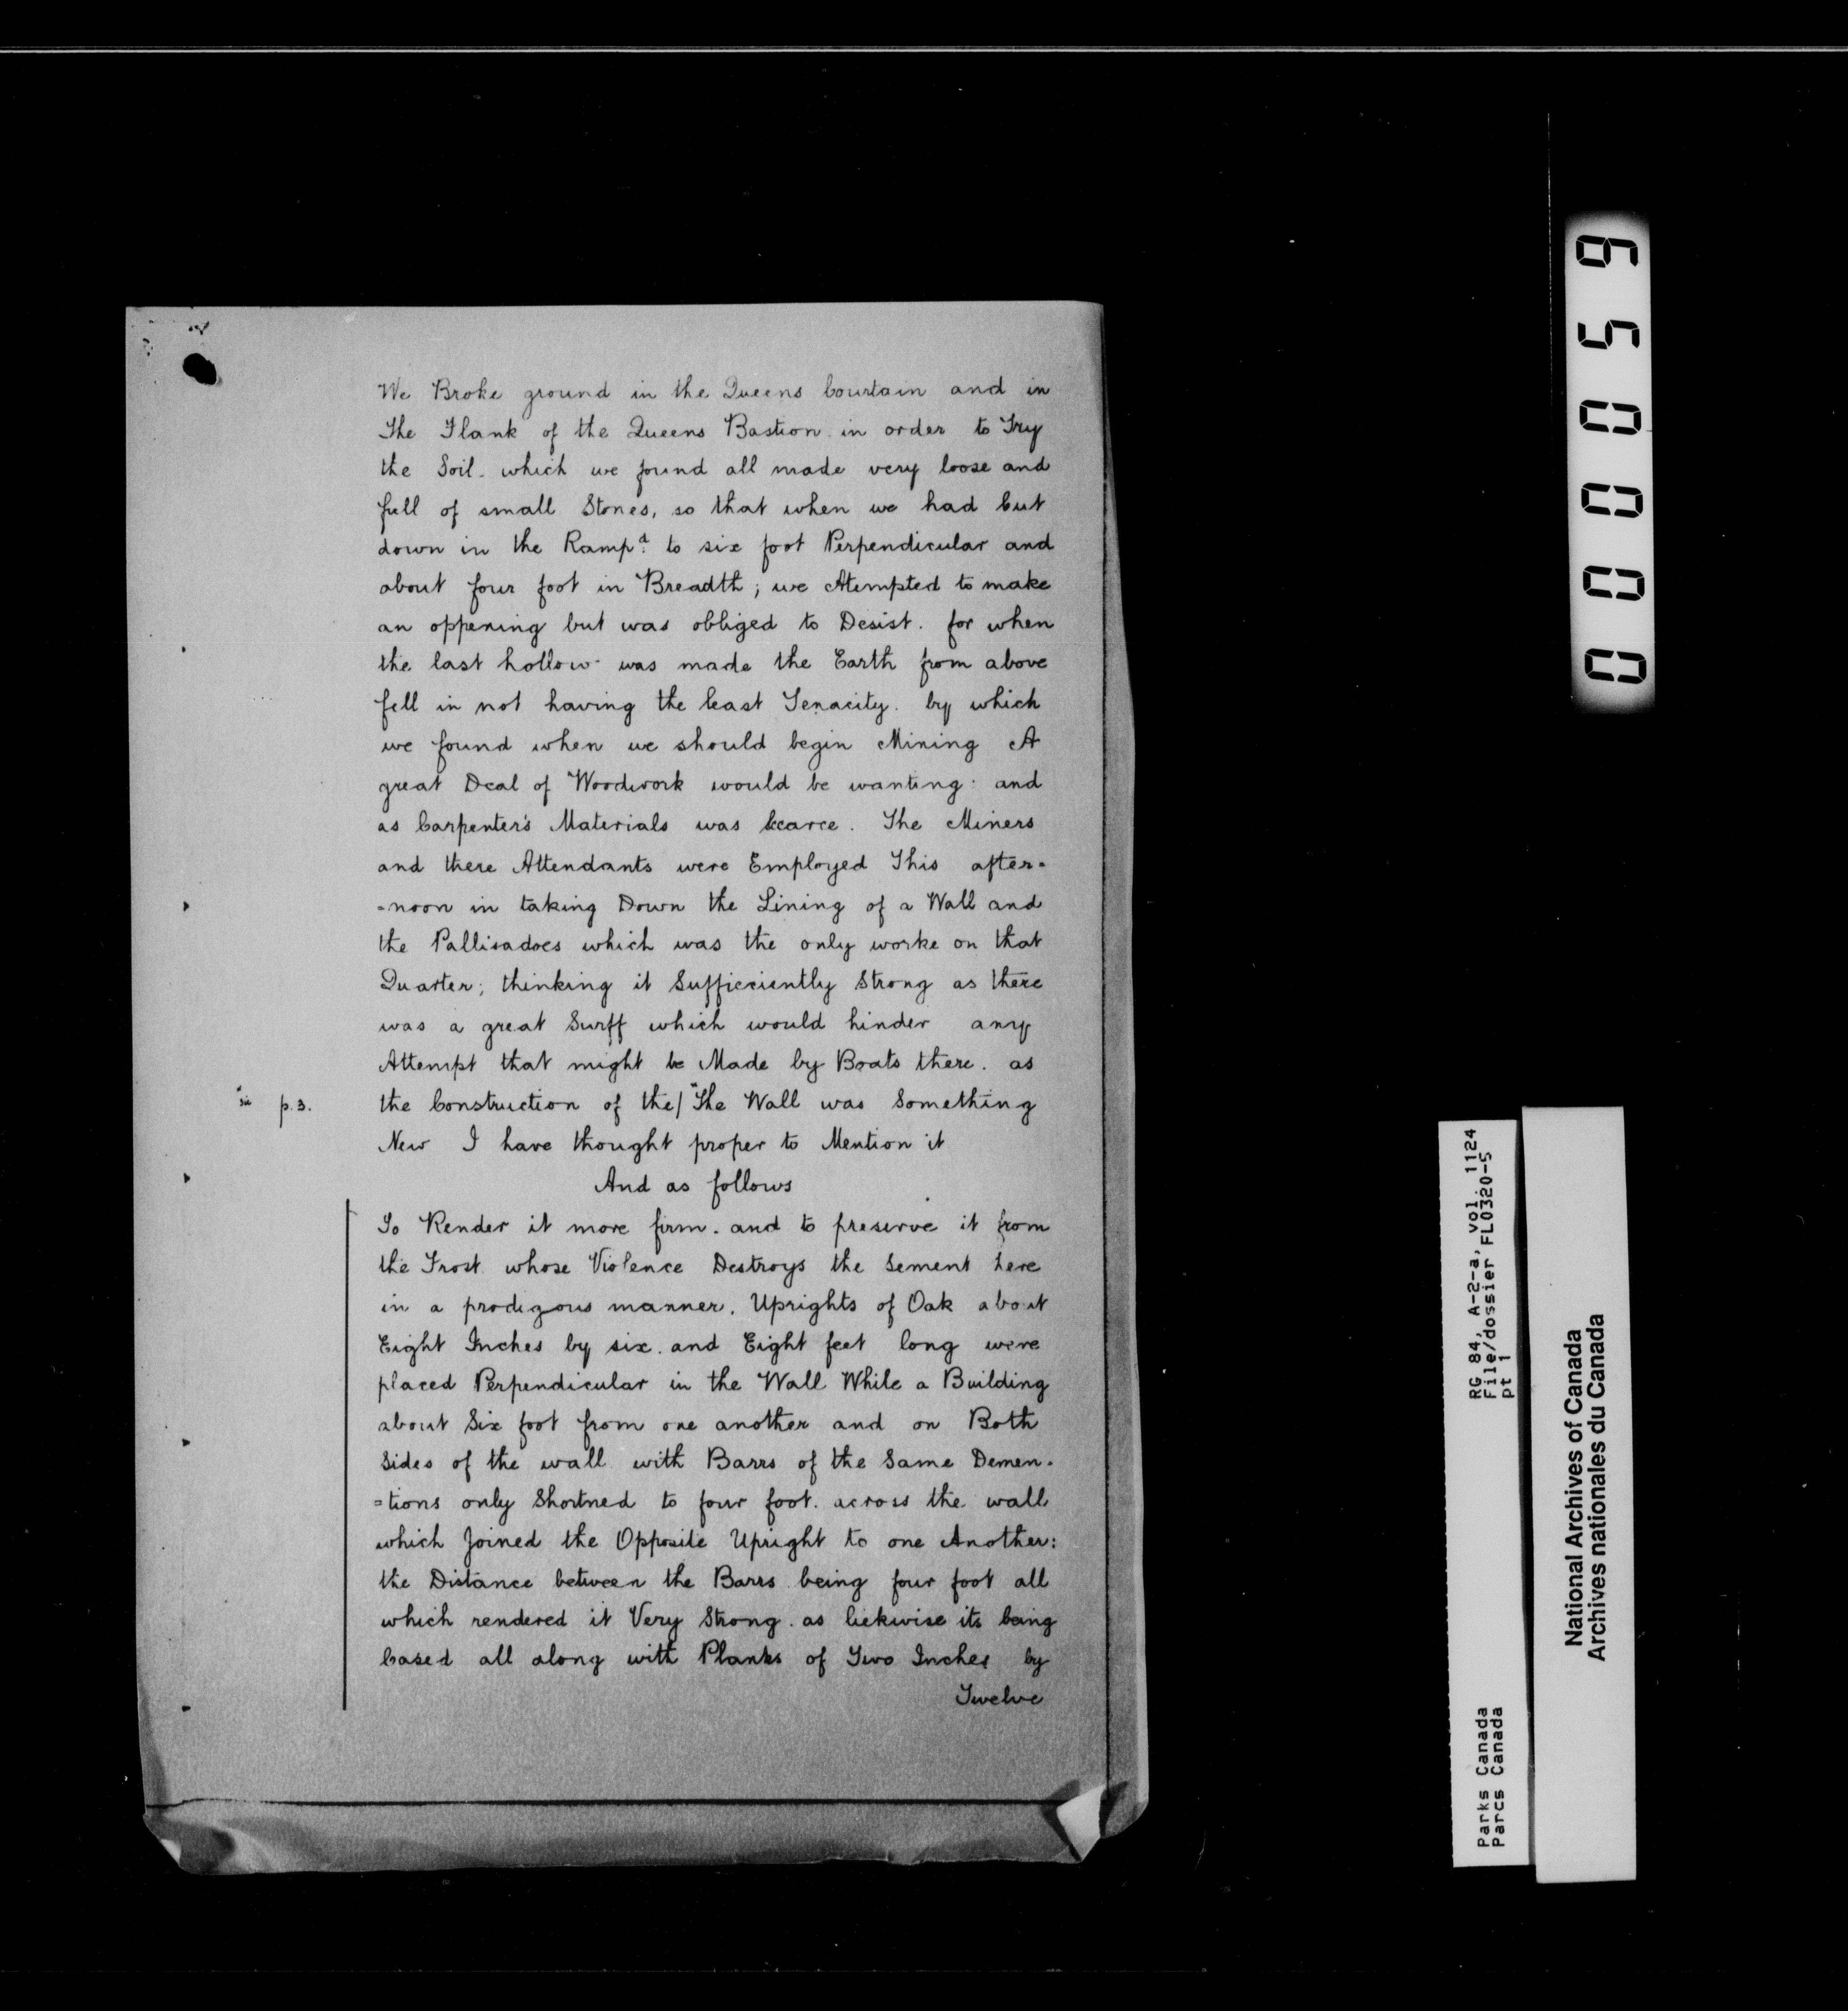 We Broke ground in the Queens Courtain and in
The Flank of the Queens Bastion in order to Try
the Soil. which we found all made very loose and
full of small Stones, so that when we had Cut
down in the Ramp.t to six foot Perpendicular and
about four foot in Breadth; we Atempted to make
an oppening but was obliged to Desist. for when
the last hollow was made the Earth from above
fell in not having the least Tenacity. by which
we found when we should begin Mining A
great Deal of Woodwork would be wanting. and
as Carpenter's Materials was Scarce. The Miners
and there Attendants were Employed This after=
=noon in taking Down the Lining of a Wall and
the Pallisadoes which was the only worke on that
Quarter; thinking it Sufficciently Strong as there
was a great Surff which would hinder any
Attempt that might be Made by Boats there. as
"sic p.3. the Construction of the/"The Wall was Something
New I have thought proper to Mention it
And as follows
To Render it more firm. and to preserve it from
the Frost whose Violence Destroys the Sement here
in a prodigous manner. Uprights of Oak about
Eight Inches by six. and Eight feet long were
placed Perpendicular in the Wall While a Building
about Six foot from one another and on Both
Sides of the wall with Barrs of the Same Demen=
=tions only Shortned to four foot. across the wall
which Joined the Opposite Upright to one Another:
the Distance between the Barrs being four foot all
which rendered it Very Strong. as liekwise its being
Cased all along with Planks of Two Inches by
Twelve
000059
RG 84, A-2-a, vol. 1124
File/dossier FL0320-5
pt 1
Parks Canada
Parcs Canada
National Archives of Canada
Archives nationales du Canada